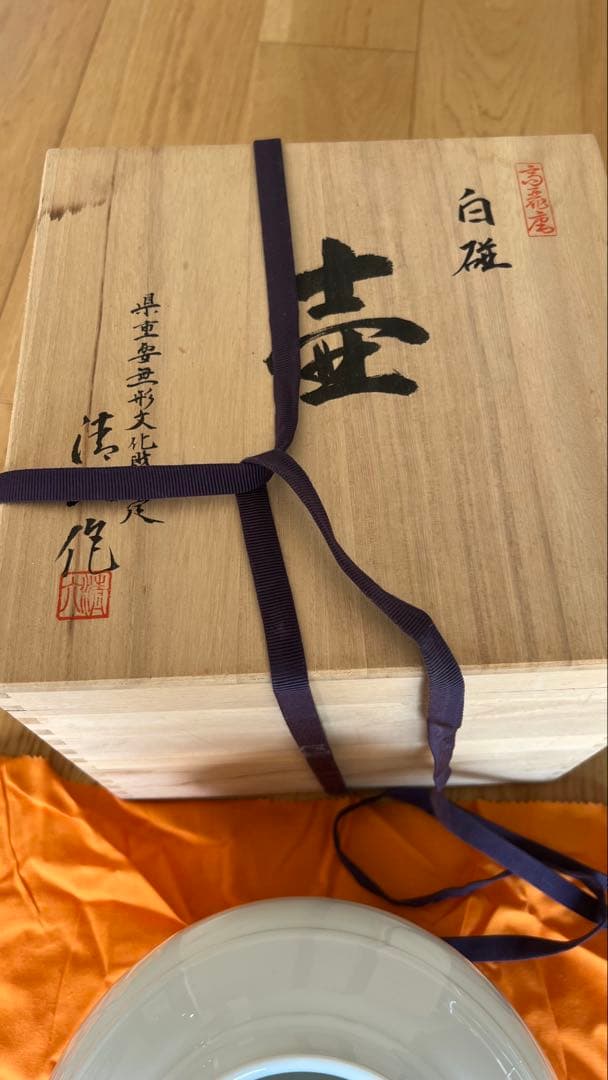 高麗庵
白磁
壷
県重要無形文化財定
清作
清六